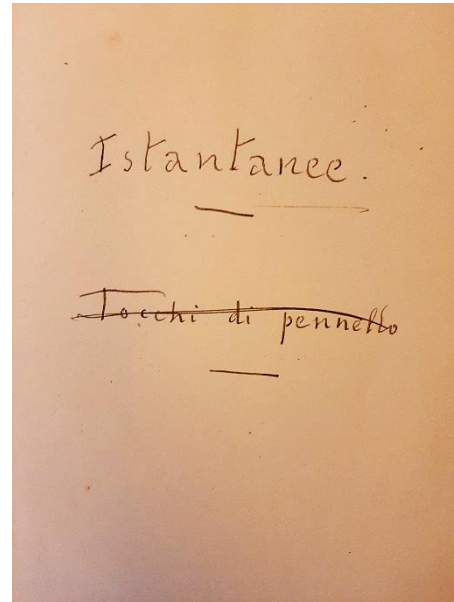 Istantanee.
Tocchi di pennello